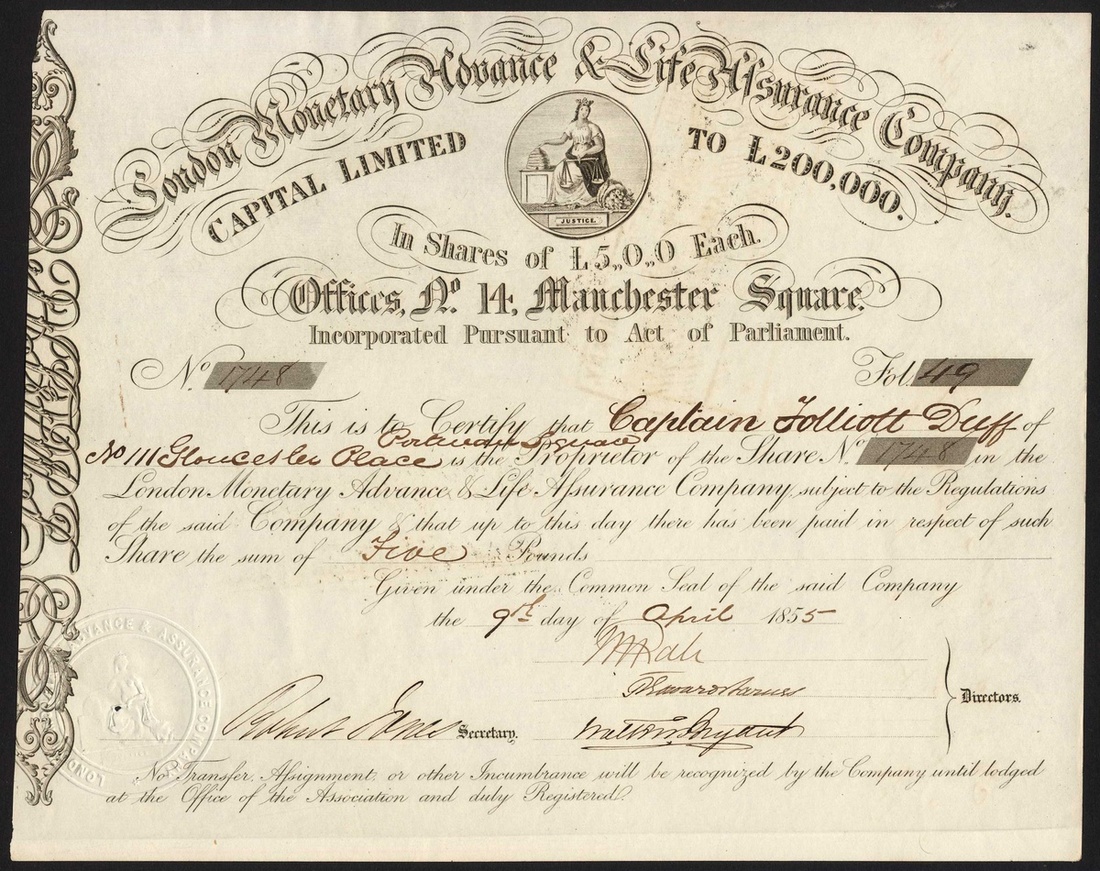 London Monetary Advance & Life Assurance Company.
CAPITAL LIMITED TO £200,000.
JUSTICE.
In Shares of £5,,0,,0 Each.
Offices, No. 14, Manchester Square.
Incorporated Pursuant to Act of Parliament.
No. 1748 Fol. 49
This is to Certify that Captain Tolliott Duff of
Portman Square
No 111 Gloucester Place is the Proprietor of the Share No. 1748 in the
London Monetary Advance & Life Assurance Company, subject to the Regulations
of the said Company & that up to this day there has been paid in respect of such
Share the sum of Five Pounds
Given under the Common Seal of the said Company
the 9th day of April 1855
Directors.
Robert Jones Secretary.
No Transfer, Assignment, or other Incumbrance will be recognized by the Company until lodged
at the Office of the Association and duly Registered.